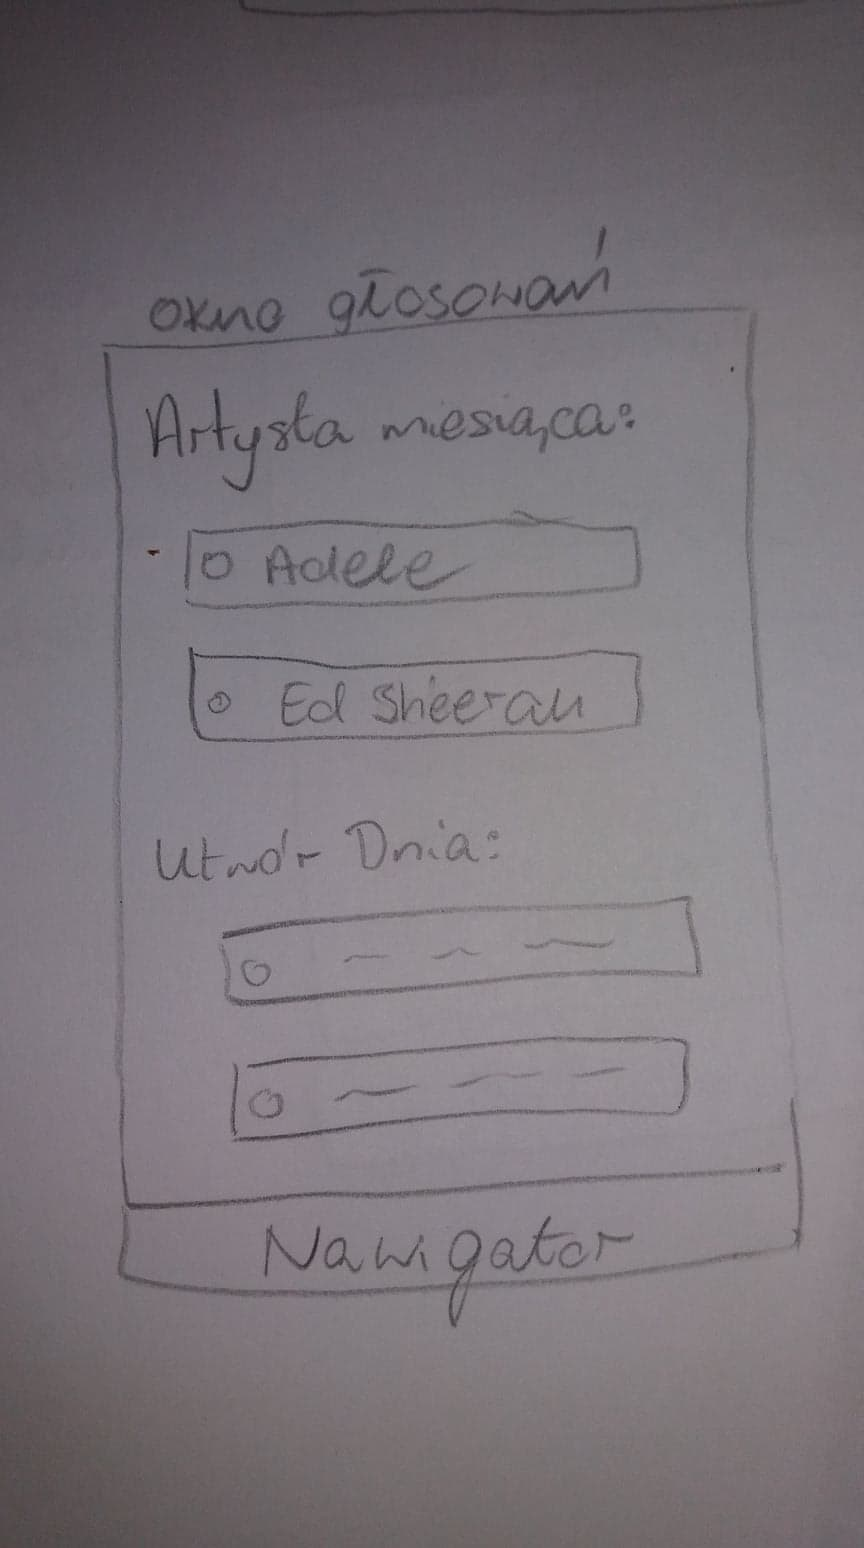 okno głosowań
Artysta miesiąca:
Adele
Ed Sheeran
Utwór Dnia:
Nawigator